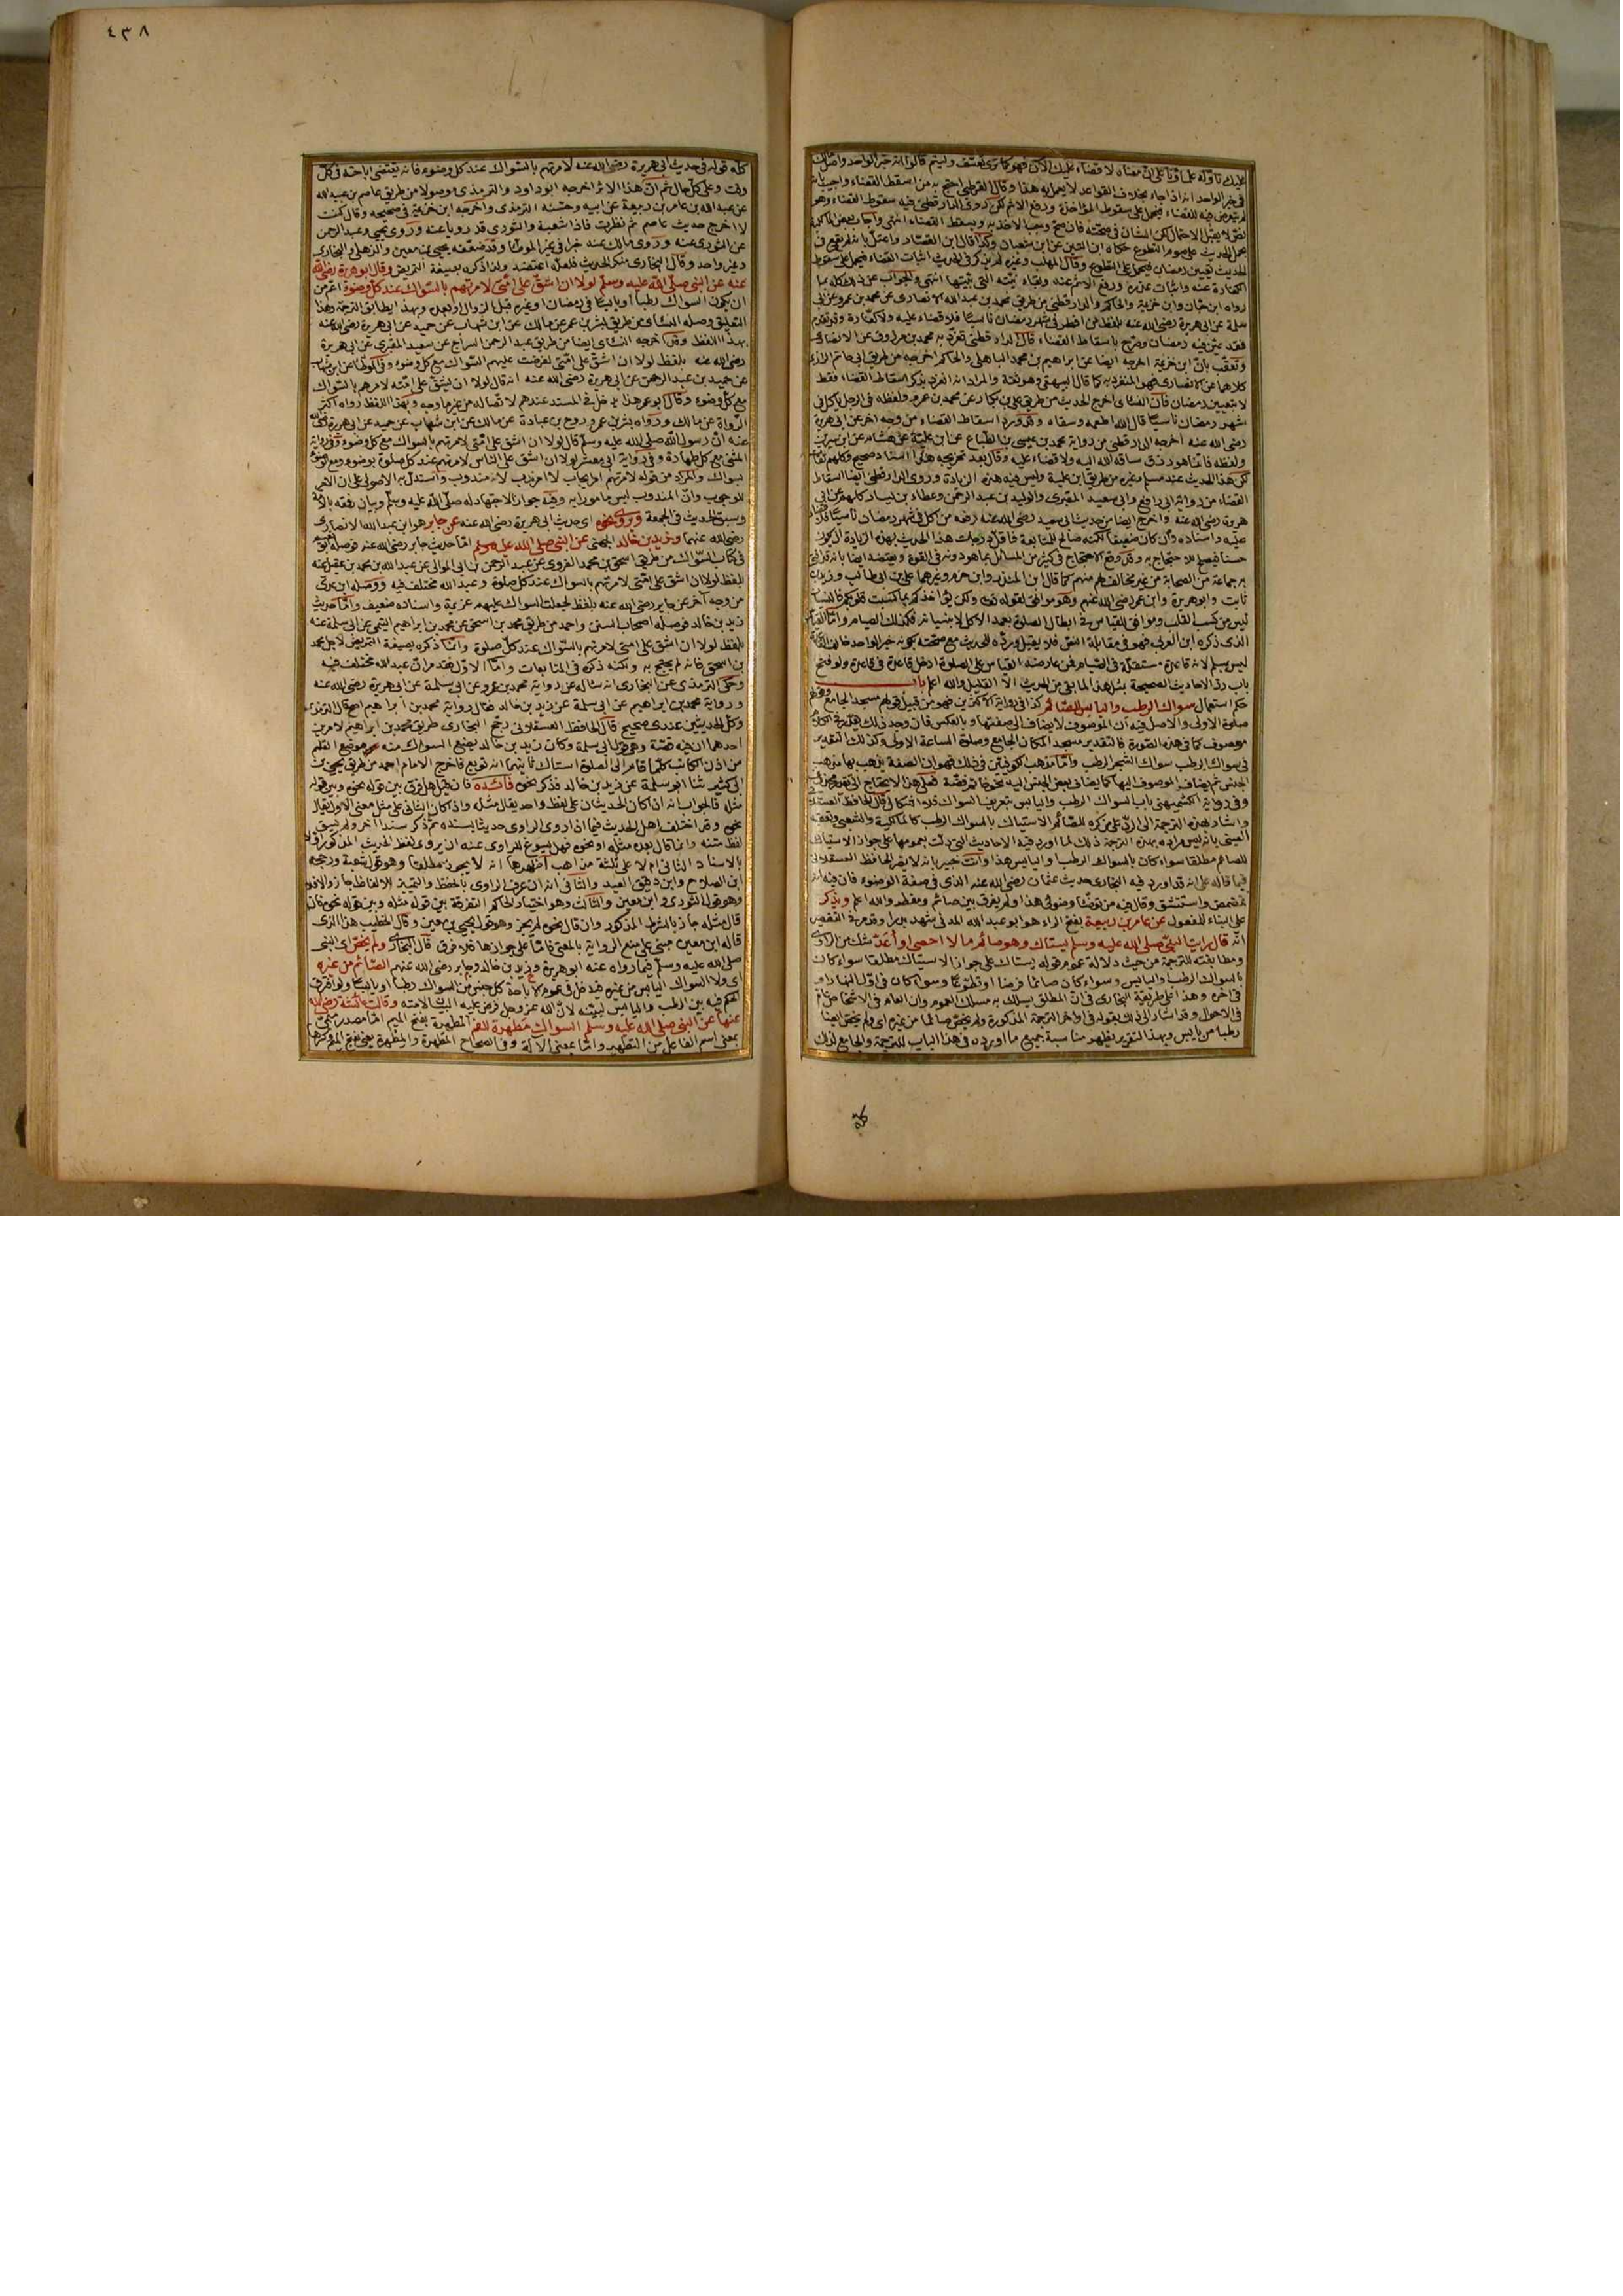 ٤٣٨
عليك تأوله علماؤنا على ان معناه لا قضاء عليك الآن فهو كما ترى تعسف وليتهم قالوا انه خبر الواحد
في خبر الواحد انه اذا جاء بخلاف القواعد لا يعمل به هذا وقال القرطبي احتج به من اسقط القضاء واجيب بانه
لم يتعرض فيه للقضاء فيحمل على سقوط المؤاخذة ورفع الاثم لكن روى الدارقطني فيه سقوط القضاء وهو
نص لا يقبل الاحتمال لكن الشان في صحته فان صح وجب الاخذ به ويسقط القضاء انتهى واجاب بعض المالكية
بحمل الحديث على صوم التطوع حكاه ابن التين عن ابن شعبان وكذا قال ابن القصار واعتل بانه لم يقع في
الحديث تعيين رمضان فيحمل على التطوع وقال المهلب وغيره لم يذكر في الحديث اثبات القضاء فيحمل على سقوط
الكفارة عنه واثبات عذره ورفع الاثم عنه وبقاء نيته التي بيتها انتهى والجواب عن ذلك كله بما
رواه ابن حبان وابن خزيمة والحاكم والدارقطني من طريق محمد بن عبدالله الانصاري عن محمد بن عمرو عن ابي
سلمة عن ابي هريرة رضي الله عنه بلفظ من افطر في شهر رمضان ناسيا فلا قضاء عليه ولا كفارة
فقد عين فيه رمضان وصرح باسقاط القضاء قال الدارقطني تفرد به محمد بن مرزوق عن الانصاري
وتعقب بان ابن خزيمة اخرجه ايضا عن ابراهيم بن محمد الباهلي والحاكم اخرجه من طريق ابي حاتم الرازي
كلاهما عن الانصاري فهو المنفرد به كما قال البيهقي وهو ثقة والمراد انه انفرد بذكر اسقاط القضاء فقط
لا بتعيين رمضان فان النسائي اخرج الحديث من طريق علي بن بكار عن محمد بن عمرو ولفظه في الرجل ياكل في
شهر رمضان ناسيا قال الله اطعمه وسقاه وقد ورد اسقاط القضاء من وجه آخر عن ابي هريرة
رضي الله عنه اخرجه الدارقطني من رواية محمد بن عيسى بن الطباع عن ابن علية عن هشام عن ابن سيرين
ولفظه فانما هو رزق ساقه الله اليه ولا قضاء عليه وقال بعد تخريجه هذا اسناد صحيح وكلهم ثقات
لكن هذا الحديث عند مسلم وغيره من طريق ابن علية وليس فيه هذه الزيادة وروى الدارقطني ايضا اسقاط
القضاء من رواية ابي رافع وابي سعيد المقبري والوليد بن عبد الرحمن وعطاء بن يسار كلهم عن ابي
هريرة رضي الله عنه واخرج ايضا من حديث ابي سعيد رضي الله عنه رفعه من اكل في شهر رمضان ناسيا فلا قضاء
عليه واسناده وان كان ضعيفا لكنه صالح للمتابعة فاقل درجات هذا الحديث بهذه الزيادة ان يكون
حسنا فيصلح للاحتجاج به وقد وقع الاحتجاج في كثير من المسائل بما هو دونه في القوة ويعتضد ايضا بانه قد افتى
به جماعة من الصحابة من غير مخالف لهم منهم كما قال ابن المنذر وابن حزم وغيرهما علي بن ابي طالب وزيد بن
ثابت وابو هريرة وابن عمر رضي الله عنهم وهو موافق لقوله تعالى ولكن يؤاخذكم بما كسبت قلوبكم فالنسيان
ليس من كسب القلب وموافق للقياس في ابطال الصلوة بعمد الاكل لا بنسيانه فكذلك الصيام واما القياس
الذي ذكره ابن العربي فهو في مقابلة النص فلا يقبل ورده للحديث مع صحته بكونه خبر الواحد خالف القاعدة
ليس بمسلم لانه قاعدة مستقلة في الصيام فمن عارضه بالقياس على الصلوة ادخل قاعدة في قاعدة ولو فتح
باب رد الاحاديث الصحيحة بمثل هذا لما بقي من الحديث الا القليل والله اعلم باب
حكم استعمال سواك الرطب واليابس للصائم كذا في رواية الاكثرين فهو من قبيل قولهم مسجد الجامع
صلوة الاولى والاصل فيه ان الموصوف لا يضاف الى صفتها وبالعكس فان وجد ذلك
موصوف كما في هذه الصورة فالتقدير مسجد المكان الجامع وصلوة الساعة الاولى وكذلك التقدير
في سواك الرطب سواك الشجر الرطب واما مذهب كوفيين في ذلك فهو ان الصفة يذهب بها مذهب
الجنس ثم يضاف الموصوف اليها كما يضاف بعض الجنس اليه نحو خاتم فضة فعلى هذا لا يحتاج الى تقدير محذوف
وفي رواية الكشميهني باب السواك الرطب واليابس بتعريف السواك
واشار بهذه الترجمة الى الرد على من كره للصائم الاستياك بالسواك الرطب كالمالكية والشعبي وتعقبه
العيني بانه ليس مراده بهذه الترجمة ذلك لما اورد فيه الاحاديث التي دلت بعمومها على جواز الاستياك
للصائم مطلقا سواء كان بالسواك الرطب واليابس هذا وانت خبير بانه لا يضر الحافظ العسقلاني
فيما قاله على انه قد اورد فيه البخاري حديث عثمان رضي الله عنه الذي في صفة الوضوء فان فيه انه
تمضمض واستنشق وقال فيه من توضأ وضوئي هذا ولم يفرق بين صائم ومفطر والله اعلم ويذكر
على البناء للمفعول عن عامر بن ربيعة بفتح الراء هو ابو عبد الله المدني شهد بدرا
انه قال رايت النبي صلى الله عليه وسلم يستاك وهو صائم ما لا احصي او اعد شك من الراوي
ومطابقته للترجمة من حيث دلالة عموم قوله يستاك على جواز الاستياك مطلقا سواء كان
بالسواك الرطب واليابس وسواء كان صائما فرضا او تطوعا وسواء كان في اول النهار او
في آخره وهذا على طريقة البخاري في ان المطلق يسلك به مسلك العموم وان العام في الاشخاص عام
في الاحوال وقد اشار الى ذلك بقوله في اواخر الترجمة المذكورة ولم يخص صائما من غيره اي ولم يخص ايضا
رطبا من يابس وبهذا التقرير يظهر مناسبة جميع ما اورده في هذا الباب للترجمة والجامع لذلك
كله
كله قوله في حديث ابي هريرة رضي الله عنه لامرتهم بالسواك عند كل وضوء فانه يقتضي اباحته في كل
وقت وعلى كل حال ثم ان هذا الاثر اخرجه ابو داود والترمذي موصولا من طريق عاصم بن عبيد الله
عن عبد الله بن عامر بن ربيعة عن ابيه وحسنه الترمذي واخرجه ابن خزيمة في صحيحه وقال كنت
لا اخرج حديث عاصم ثم نظرت فاذا شعبة والثوري قد رويا عنه وروى يحيى وعبد الرحمن
عن الثوري عنه وروى مالك عنه خبرا في غير الموطأ وقد ضعفه يحيى بن معين والذهلي والبخاري
وغير واحد وقال البخاري منكر الحديث فلعله اعتضد ولذا ذكره بصيغة التمريض وقال ابو هريرة رضي الله
عنه عن النبي صلى الله عليه وسلم لولا ان اشق على امتي لامرتهم بالسواك عند كل وضوء اعم من
ان يكون السواك رطبا او يابسا في رمضان او غيره قبل الزوال او بعده وبهذا يطابق الترجمة وهذا
التعليق وصله النسائي من طريق بشر بن عمر عن مالك عن ابن شهاب عن حميد عن ابي هريرة رضي الله عنه
بهذا اللفظ وقد اخرجه النسائي ايضا من طريق عبد الرحمن السراج عن سعيد المقبري عن ابي هريرة
رضي الله عنه بلفظ لولا ان اشق على امتي لفرضت عليهم السواك مع كل وضوء وفي الموطأ عن ابن شهاب
عن حميد بن عبد الرحمن عن ابي هريرة رضي الله عنه انه قال لولا ان يشق على امته لامرهم بالسواك
مع كل وضوء وقال ابو عمر هذا يدخل في المسند عندهم لاتصاله من غير ما وجه وبهذا اللفظ رواه اكثر
الرواة عن مالك ورواه بشر بن عمرو وروح بن عبادة عن مالك عن ابن شهاب عن حميد عن ابي هريرة رضي الله
عنه ان رسول الله صلى الله عليه وسلم قال لولا ان اشق على امتي لامرتهم بالسواك مع كل وضوء وفي رواية
المثنى مع كل طهارة وفي رواية ابي معشر لولا ان اشق على الناس لامرتهم عند كل صلوة بوضوء ومع كل وضوء
بسواك والمراد من قوله لامرتهم امر ايجاب لا امر ندب لانه مندوب واستدل به الاصولي على ان الامر
للوجوب وان المندوب ليس مامورا به وفيه جواز الاجتهاد له صلى الله عليه وسلم وبيان رفقه بالامة
وسبق الحديث في الجمعة ويروى نحوه اي حديث ابي هريرة رضي الله عنه عن جابر هو ابن عبد الله الانصاري
رضي الله عنهما وزيد بن خالد الجهني عن النبي صلى الله عليه وسلم اما حديث جابر رضي الله عنه فوصله ابو نعيم
في كتاب السواك من طريق اسحق بن محمد الفروي عن عبد الرحمن بن ابي الموالي عن عبد الله بن محمد بن عقيل عنه
بلفظ لولا ان اشق على امتي لامرتهم بالسواك عند كل صلوة وعبد الله مختلف فيه ووصله ابن عدي
من وجه آخر عن جابر رضي الله عنه بلفظ لجعلت السواك عليهم عزيمة واسناده ضعيف واما حديث
زيد بن خالد فوصله اصحاب السنن واحمد من طريق محمد بن اسحق عن محمد بن ابراهيم التيمي عن ابي سلمة عنه
بلفظ لولا ان اشق على امتي لامرتهم بالسواك عند كل صلوة وانما ذكره بصيغة التمريض لاجل محمد
بن اسحق فانه لم يحتج به ولكنه ذكره في المتابعات واما الاول فقد مر ان عبد الله مختلف فيه
وحكى الترمذي عن البخاري انه سأله عن رواية محمد بن عمرو عن ابي سلمة عن ابي هريرة رضي الله عنه
ورواية محمد بن ابراهيم عن ابي سلمة عن زيد بن خالد فقال رواية محمد بن ابراهيم اصح قال الترمذي
وكلا الحديثين عندي صحيح قال الحافظ العسقلاني رجح البخاري طريق محمد بن ابراهيم لامرين
احدهما ان فيه قصة وهي قول ابي سلمة وكان زيد بن خالد يضع السواك منه موضع القلم
من اذن الكاتب كلما قام الى الصلوة استاك ثانيهما انه توبع فاخرج الامام احمد من طريق يحيى بن
ابي كثير ثنا ابو سلمة عن زيد بن خالد فذكر نحوه فائدة فان قيل هل فرق بين قوله نحوه وبين قوله
مثله فالجواب انه اذا كان الحديثان على لفظ واحد يقال مثله واذا كان الثاني على مثل معنى الاول يقال
نحوه وقد اختلف اهل الحديث فيما اذا روى الراوي حديثا بسنده ثم ذكر سندا آخر ولم يسق
لفظ متنه وانما قال بعده مثله او نحوه فهل يسوغ للراوي عنه ان يروي لفظ الحديث المذكور اولا
بالاسناد الثاني ام لا على ثلثة مذاهب اظهرها انه لا يجوز مطلقا وهو قول شعبة ورجحه
ابن الصلاح وابن دقيق العيد والثاني انه ان عرف الراوي بالحفظ والتمييز للالفاظ جاز والا فلا
وهو قول الثوري وابن معين والثالث وهو اختيار الحاكم التفرقة بين قوله مثله وبين قوله نحوه فان
قال مثله جاز بالشرط المذكور وان قال نحوه لم يجز وهو قول يحيى بن معين وقال الخطيب هذا الذي
قاله ابن معين مبني على منع الرواية بالمعنى فاما على جوازها فلا فرق قال البخاري ولم يخص اي النبي
صلى الله عليه وسلم فيما رواه عنه ابو هريرة وزيد بن خالد وجابر رضي الله عنهم الصائم من غيره
اي ولا السواك اليابس من غيره فيدخل في عموم الاباحة كل جنس من السواك رطبا او يابسا ولو افترق
الحكم فيه بين الرطب واليابس لبينه لان الله عز وجل فرض عليه البيان لامته وقالت عائشة رضي الله
عنها عن النبي صلى الله عليه وسلم السواك مطهرة للفم المطهرة بفتح الميم اما مصدر ميمي
بمعنى اسم الفاعل من التطهير واما بمعنى الآلة وفي الصحاح المطهرة والمطهرة يعني بفتح الميم وكسرها